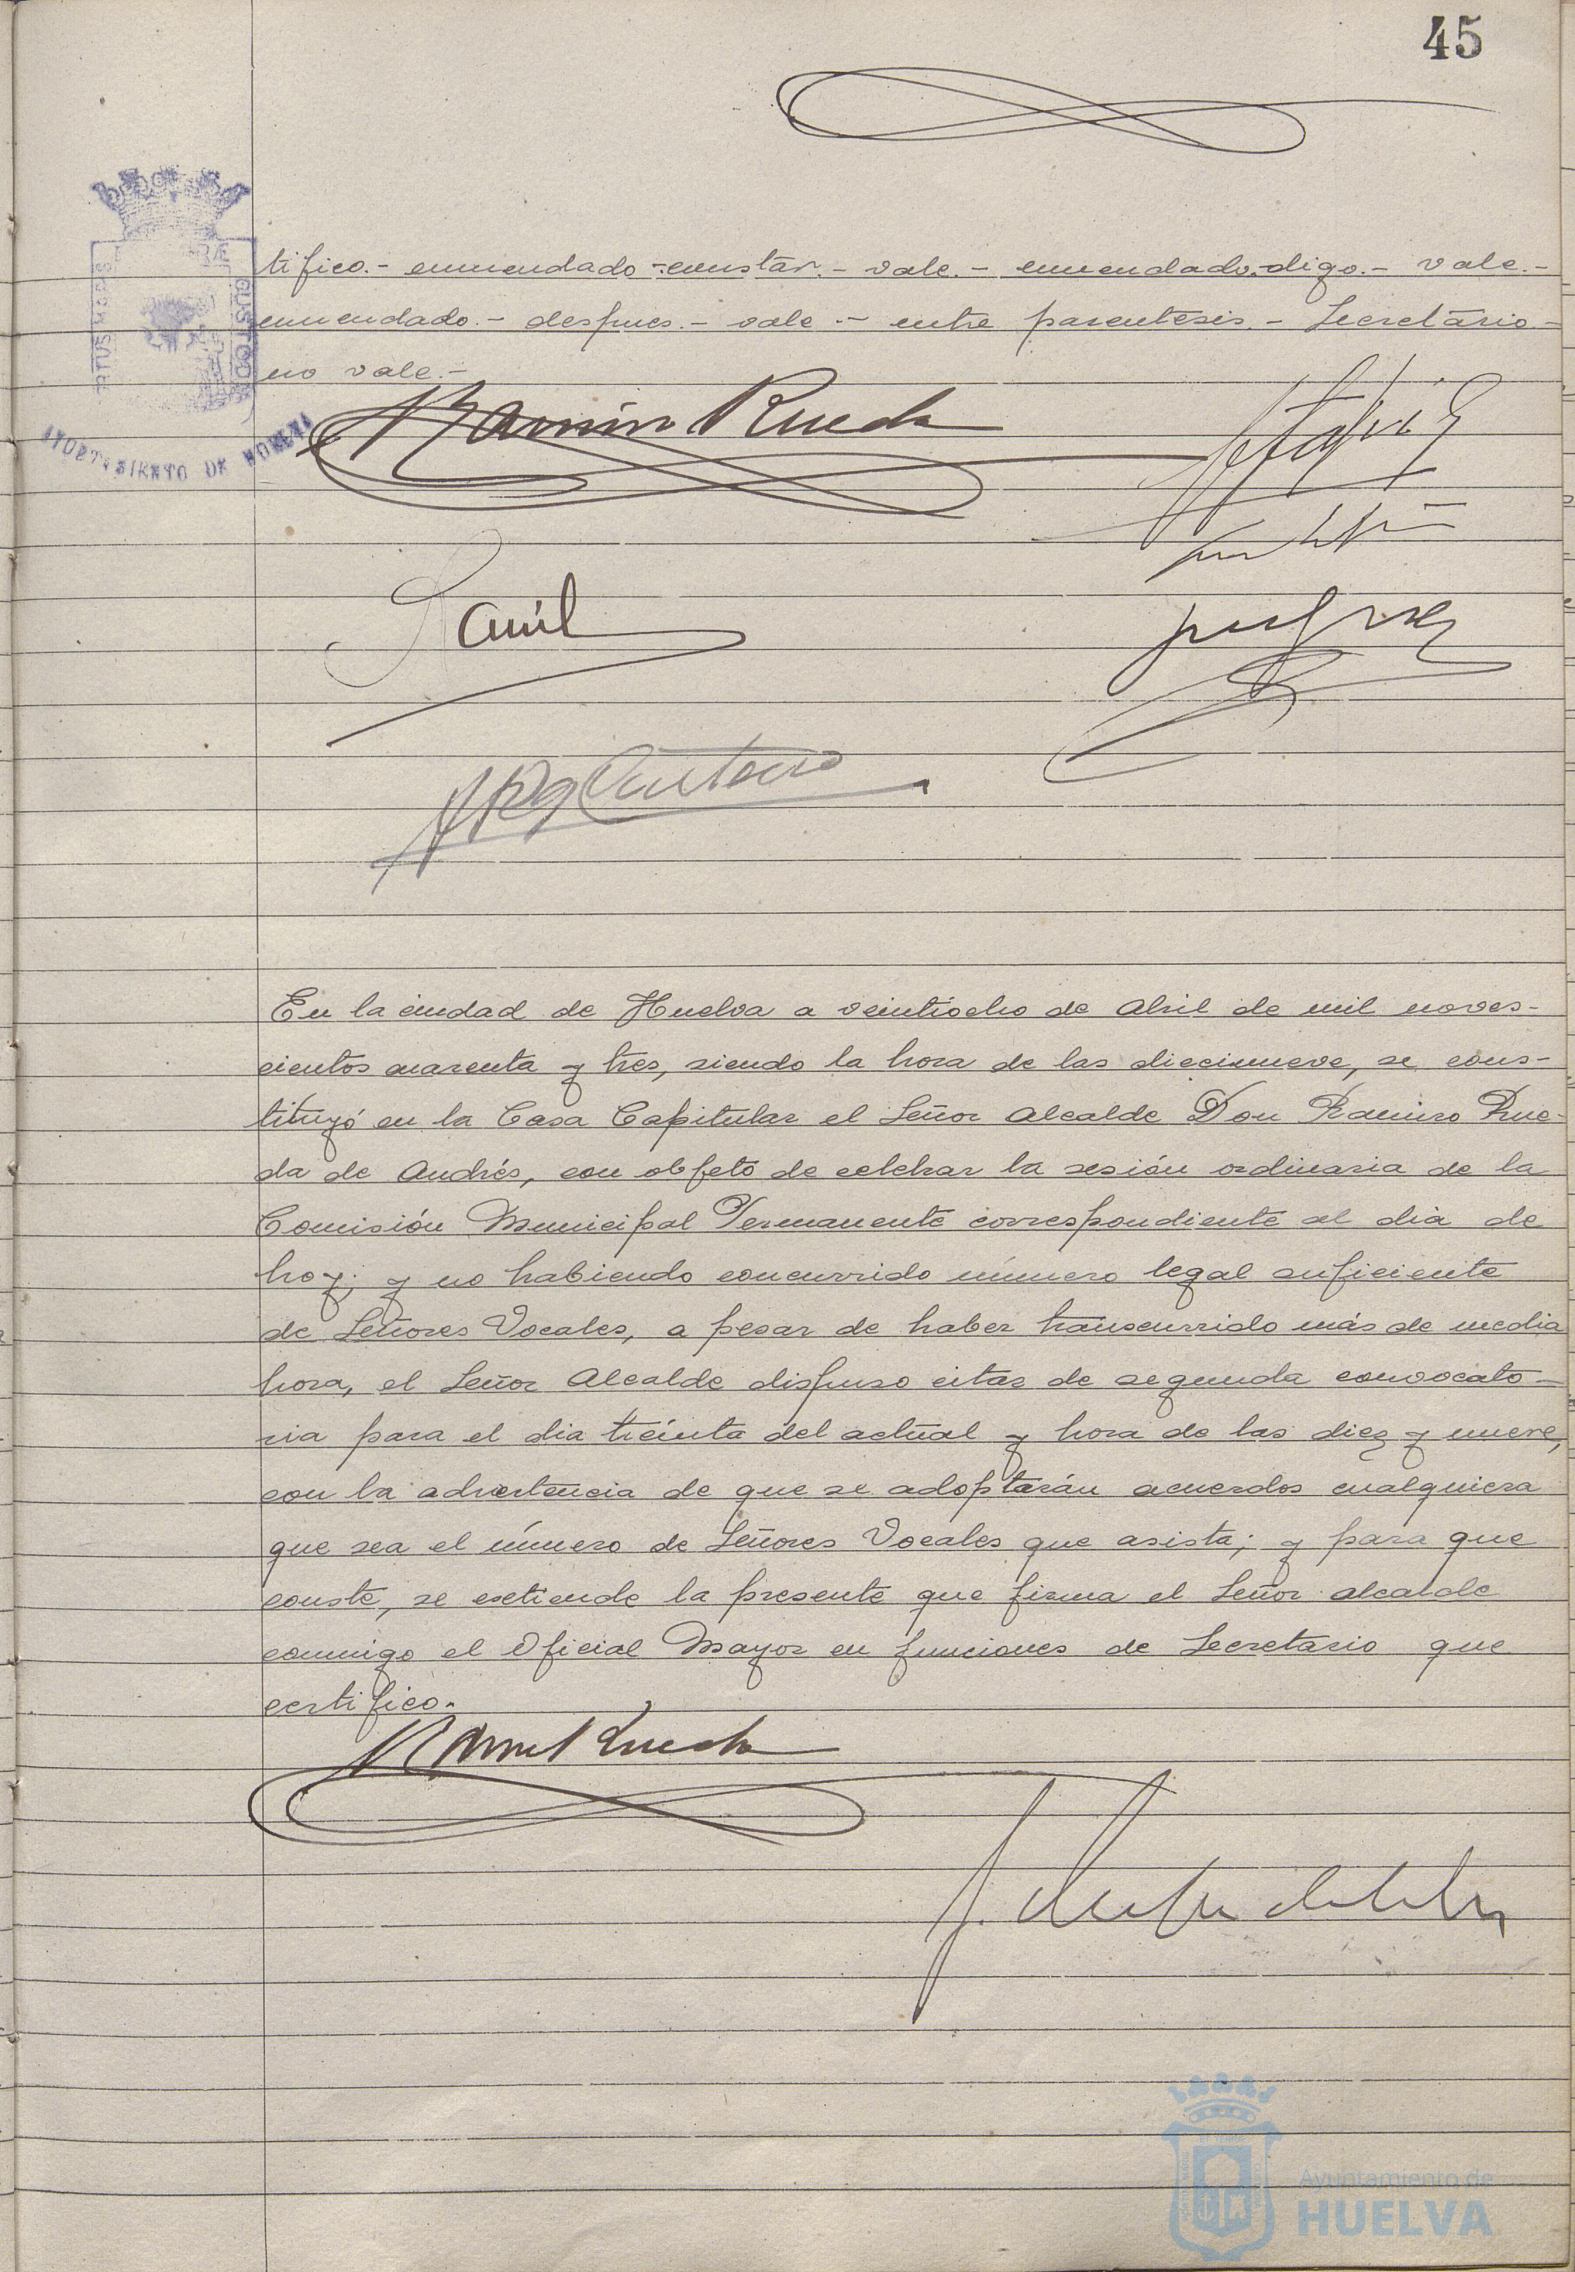 45
tifico.- enmendado-constar.- vale.- enmendado.-digo.- vale.-
enmendado.- despues.- vale.- entre parentesis.- Secretario.-
no vale.-
Ramiro Rueda
En la ciudad de Huelva a veintiocho de Abril de mil noves-
cientos cuarenta y tres, siendo la hora de las diecinueve, se cons-
tituyó en la Casa Capitular el Señor Alcalde Don Ramiro Rue-
da de Andrés, con objeto de celebrar la sesión ordinaria de la
Comisión Municipal Permanente correspondiente al dia de
hoy; y no habiendo concurrido número legal suficiente
de Señores Vocales, a pesar de haber transcurrido más de media
hora, el Señor Alcalde dispuso citar de segunda convocato-
ria para el dia treinta del actual y hora de las diez y nueve,
con la advertencia de que se adoptarán acuerdos cualquiera
que sea el número de Señores Vocales que asista; y para que
conste, se extiende la presente que firma el Señor alcalde
conmigo el Oficial Mayor en funciones de Secretario que
certifico.
Ramiro Rueda
Ayuntamiento de
HUELVA